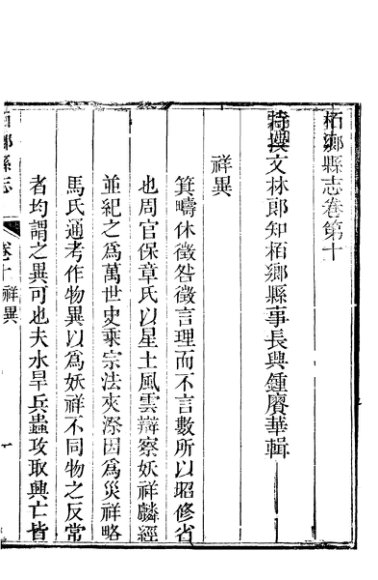 柏鄉縣志卷第十
特授文林郎知柏鄉縣事長興鍾賡華輯
祥異
箕疇休徵咎徵言理而不言數所以昭修省
也周官保章氏以星土風雲辯察妖祥麟經
並紀之爲萬世史乘宗法夾漈因爲災祥略
馬氏通考作物異以爲妖祥不同物之反常
者均謂之異可也夫水旱兵蟲攻取興亡皆
柏鄉縣志
卷十祥異
一